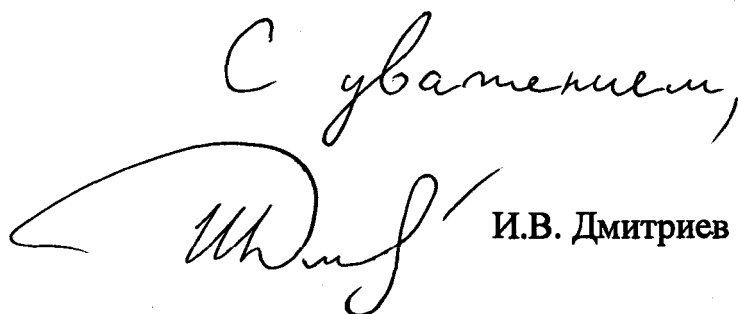 С уважением,
И.В. Дмитриев